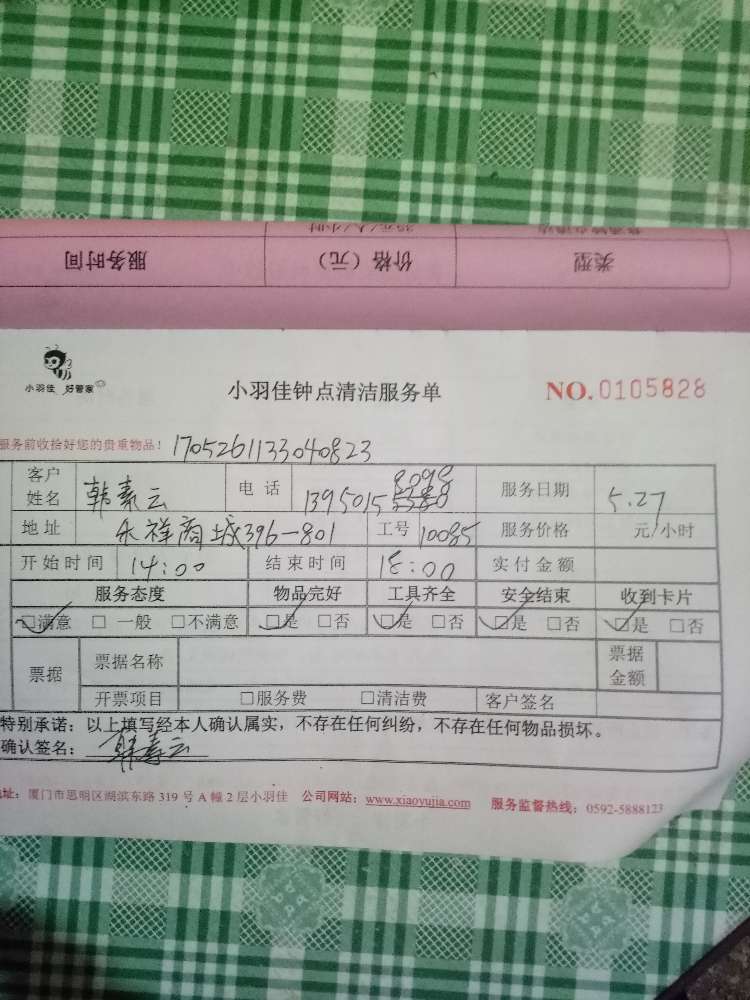 服务时间 价格（元） 类型
小羽佳 好管家
小羽佳钟点清洁服务单 NO.0105828
服务前收拾好您的贵重物品！ 1705261133040823
客户姓名 韩素云 电话 1395015 8098 服务日期 5.27
地址 禾祥商城396-801 工号 10085 服务价格 元/小时
开始时间 14:00 结束时间 18:00 实付金额
服务态度 物品完好 工具齐全 安全结束 收到卡片
☑满意 □一般 □不满意 ☑是 □否 ☑是 □否 ☑是 □否 ☑是 □否
票据 票据名称 票据金额
开票项目 □服务费 □清洁费 客户签名
特别承诺：以上填写经本人确认属实，不存在任何纠纷，不存在任何物品损坏。
确认签名：韩素云
地址：厦门市思明区湖滨东路 319 号 A 幢 2 层小羽佳 公司网站：www.xiaoyujia.com 服务监督热线：0592-5888123